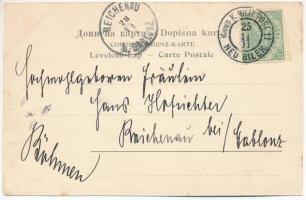 REICHENAU
28
K. UND K. MILIT. POST
25
11
NEU BILEK
Дописна карта Dopisna karta
CORRESPONDENZ-KARTE
Levelező-Lap — Carte Postale
Hochwohlgeboren Fräulein
Hans Hofrichter
Reichenau bei/ Gablonz
Böhmen